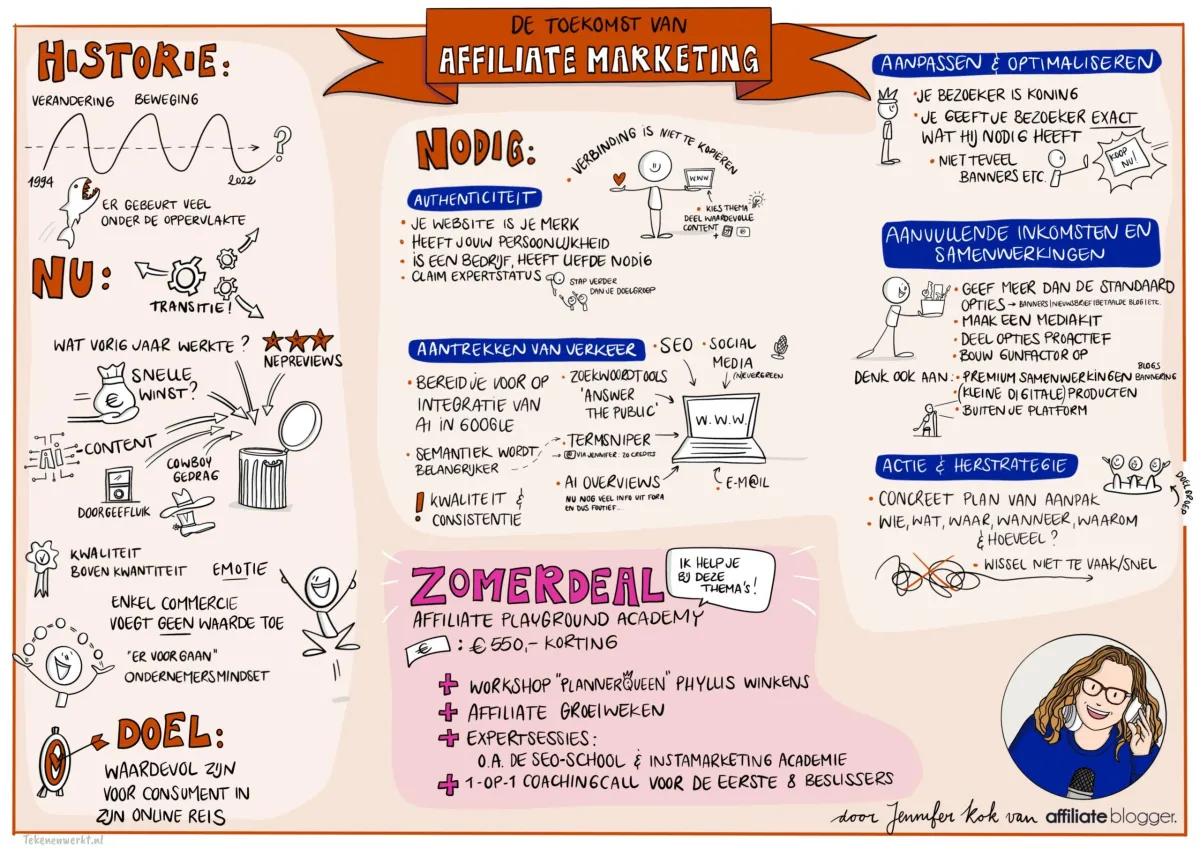 DE TOEKOMST VAN
AFFILIATE MARKETING
HISTORIE:
VERANDERING BEWEGING
?
1994 2022
ER GEBEURT VEEL
ONDER DE OPPERVLAKTE
NU:
TRANSITIE!
WAT VORIG JAAR WERKTE?
NEPREVIEWS
SNELLE
WINST?
€
AI-CONTENT
COWBOY
GEDRAG
DOORGEEFLUIK
KWALITEIT
BOVEN KWANTITEIT
EMOTIE
ENKEL COMMERCIE
VOEGT GEEN WAARDE TOE
"ER VOOR GAAN"
ONDERNEMERSMINDSET
DOEL:
WAARDEVOL ZIJN
VOOR CONSUMENT IN
ZIJN ONLINE REIS
NODIG:
• VERBINDING IS NIET TE KOPIEREN
WWW
• KIES THEMA
DEEL WAARDEVOLLE
CONTENT
+
AUTHENTICITEIT
• JE WEBSITE IS JE MERK
• HEEFT JOUW PERSOONLIJKHEID
• IS EEN BEDRIJF, HEEFT LIEFDE NODIG
• CLAIM EXPERTSTATUS
STAP VERDER
DAN JE DOELGROEP
AANTREKKEN VAN VERKEER
• BEREID JE VOOR OP
INTEGRATIE VAN
AI IN GOOGLE
• SEMANTIEK WORDT
BELANGRIJKER
! KWALITEIT &
CONSISTENTIE
• SEO
• SOCIAL
MEDIA
(N)EVERGREEN
• ZOEKWOORDTOOLS
'ANSWER
THE PUBLIC'
• TERMSNIPER
VIA JENNIFER: 20 CREDITS
• AI OVERVIEWS
NU NOG VEEL INFO UIT FORA
EN DUS FOUTIEF...
W.W.W.
• E-M@IL
ZOMERDEAL
IK HELP JE
BIJ DEZE
THEMA'S!
AFFILIATE PLAYGROUND ACADEMY
€ : € 550,- KORTING
+ WORKSHOP "PLANNERQUEEN" PHYLLIS WINKENS
+ AFFILIATE GROEIWEKEN
+ EXPERTSESSIES:
O.A. DE SEO-SCHOOL & INSTAMARKETING ACADEMIE
+ 1-OP-1 COACHINGCALL VOOR DE EERSTE 8 BESLISSERS
AANPASSEN & OPTIMALISEREN
• JE BEZOEKER IS KONING
• JE GEEFT JE BEZOEKER EXACT
WAT HIJ NODIG HEEFT
• NIET TEVEEL
BANNERS ETC.
KOOP
NU!
AANVULLENDE INKOMSTEN EN
SAMENWERKINGEN
• GEEF MEER DAN DE STANDAARD
OPTIES → BANNERS|NIEUWSBRIEF|BETAALDE BLOG|ETC.
• MAAK EEN MEDIAKIT
• DEEL OPTIES PROACTIEF
• BOUW GUNFACTOR OP
DENK OOK AAN: • PREMIUM SAMENWERKINGEN
BLOGS
BANNERING
• (KLEINE DIGITALE) PRODUCTEN
• BUITEN JE PLATFORM
ACTIE & HERSTRATEGIE
DOELGROEP
• CONCREET PLAN VAN AANPAK
• WIE, WAT, WAAR, WANNEER, WAAROM
& HOEVEEL?
• WISSEL NIET TE VAAK/SNEL
door Jennifer Kok van affiliateblogger.
Tekenenwerkt.nl